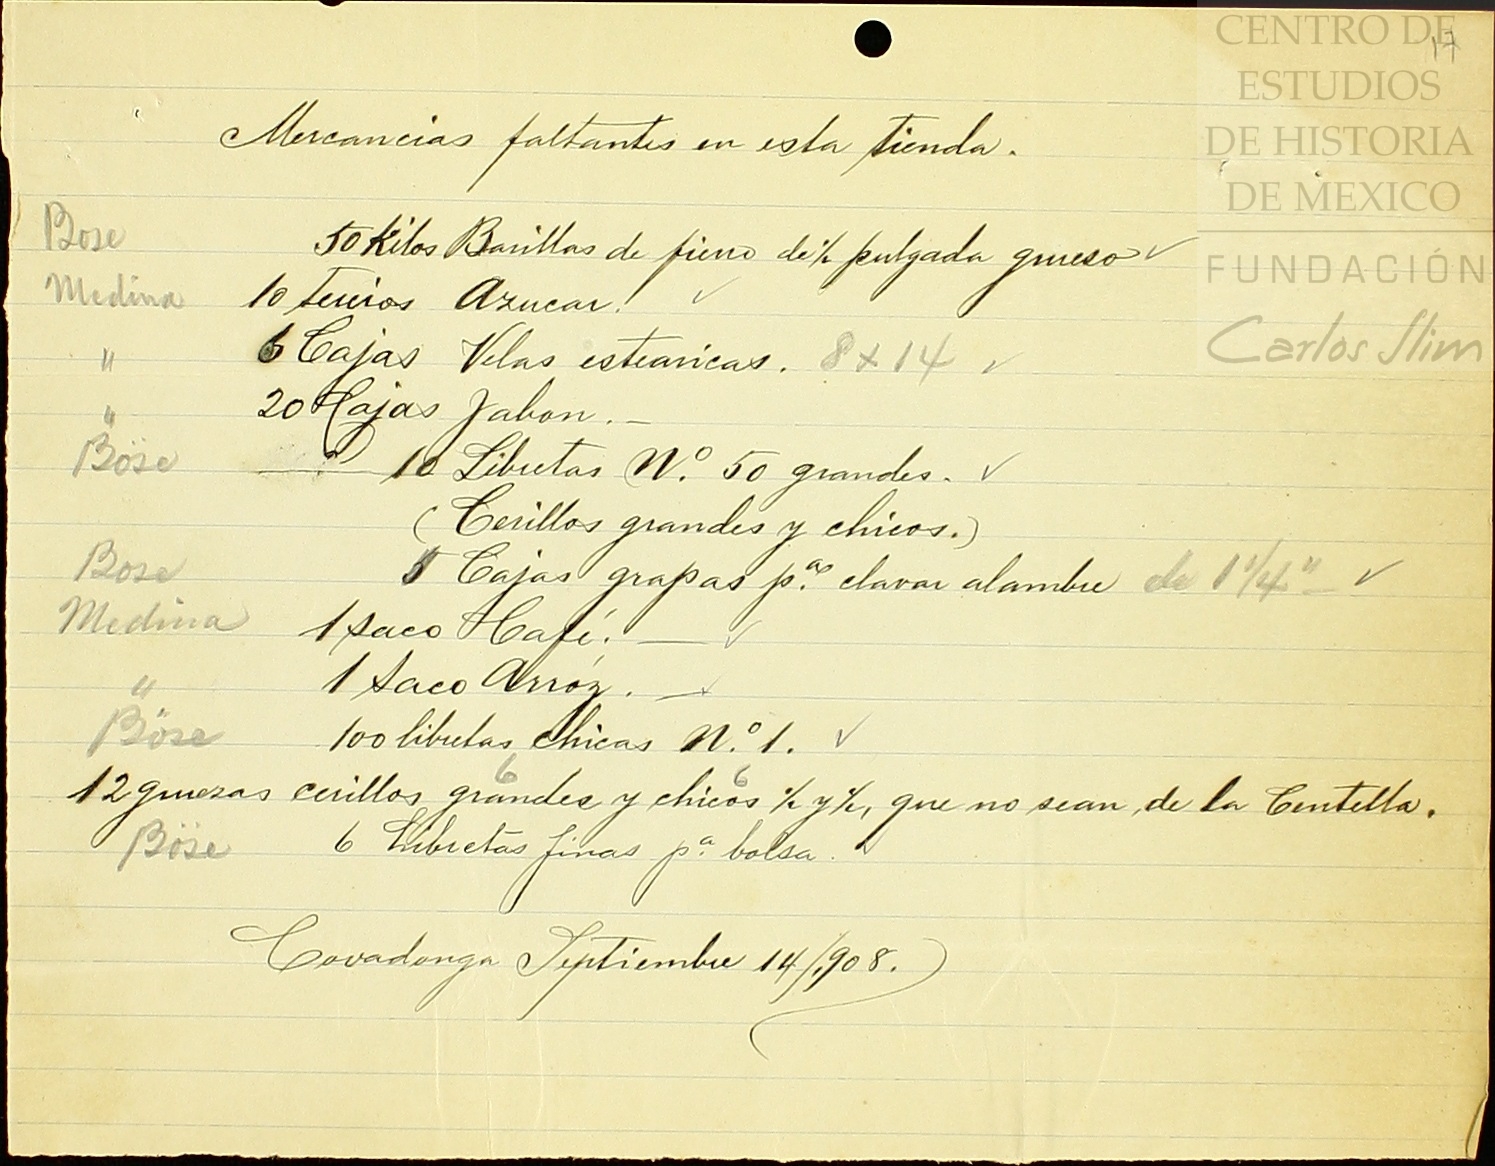 CENTRO DE
ESTUDIOS
DE HISTORIA
DE MEXICO
FUNDACIÓN
Carlos Slim
17
Mercancias faltantes en esta tienda.
Bose 50 Kilos Barillas de fierro de ½ pulgada grueso ✓
Medina 10 tercios Azucar. ✓
" 6 Cajas Velas estearicas. 8 x 14 ✓
" 20 Cajas Jabon. —
Böse 10 Libretas N.º 50 grandes. ✓
(Cerillos grandes y chicos.)
Bose 5 Cajas grapas p.ª clavar alambre de 1 1/4" — ✓
Medina 1 saco Café. — ✓
" 1 saco Arróz. — ✓
Böse 100 libretas chicas N.º 1. ✓
6 6
12 gruezas cerillos grandes y chicos ½ y ½, que no sean de la Centella.
Böse 6 Libretas finas p.ª bolsa. ✓
Covadonga Septiembre 14/908.